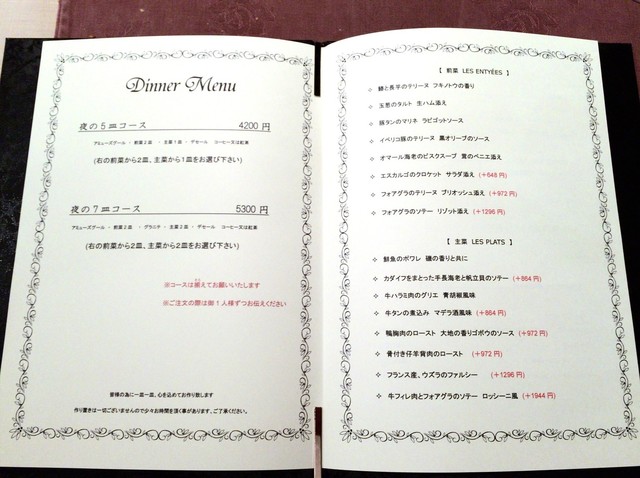 Dinner Menu
夜の5皿コース 4200 円
アミューズブール ・ 前菜2皿 ・ 主菜1皿 ・ デセール コーヒー又は紅茶
(右の前菜から2皿、主菜から1皿をお選び下さい)
夜の7皿コース 5300 円
アミューズブール ・ 前菜2皿 ・ グラニテ ・ 主菜2皿 ・ デセール コーヒー又は紅茶
(右の前菜から2皿、主菜から2皿をお選び下さい)
※コースは揃えてお願いいたします
※ご注文の際は御1人様ずつお伝えください
皆様の為に一皿一皿、心を込めてお作り致します
作り置きは一切ございませんので少々お時間を頂く事があります。ご了承ください。
【 前菜 LES ENTYÉES 】
と長芋のテリーヌ フキノトウの香り
玉葱のタルト 生ハム添え
豚タンのマリネ ラビゴットソース
イベリコ豚のテリーヌ 黒オリーブのソース
オマール海老のビスクスープ 茸のベニエ添え
エスカルゴのクロケット サラダ添え (+648 円)
フォアグラのテリーヌ ブリオッシュ添え (+972 円)
フォアグラのソテー リゾット添え (+1296 円)
【 主菜 LES PLATS 】
鮮魚のポワレ 磯の香りと共に
カダイフをまとった手長海老と帆立貝のソテー (+864 円)
牛ハラミ肉のグリエ 青胡椒風味
牛タンの煮込み マデラ酒風味 (+864 円)
鴨胸肉のロースト 大地の香りゴボウのソース (+972 円)
骨付き仔羊背肉のロースト (+972 円)
フランス産、ウズラのファルシー (+1296 円)
牛フィレ肉とフォアグラのソテー ロッシーニ風 (+1944 円)